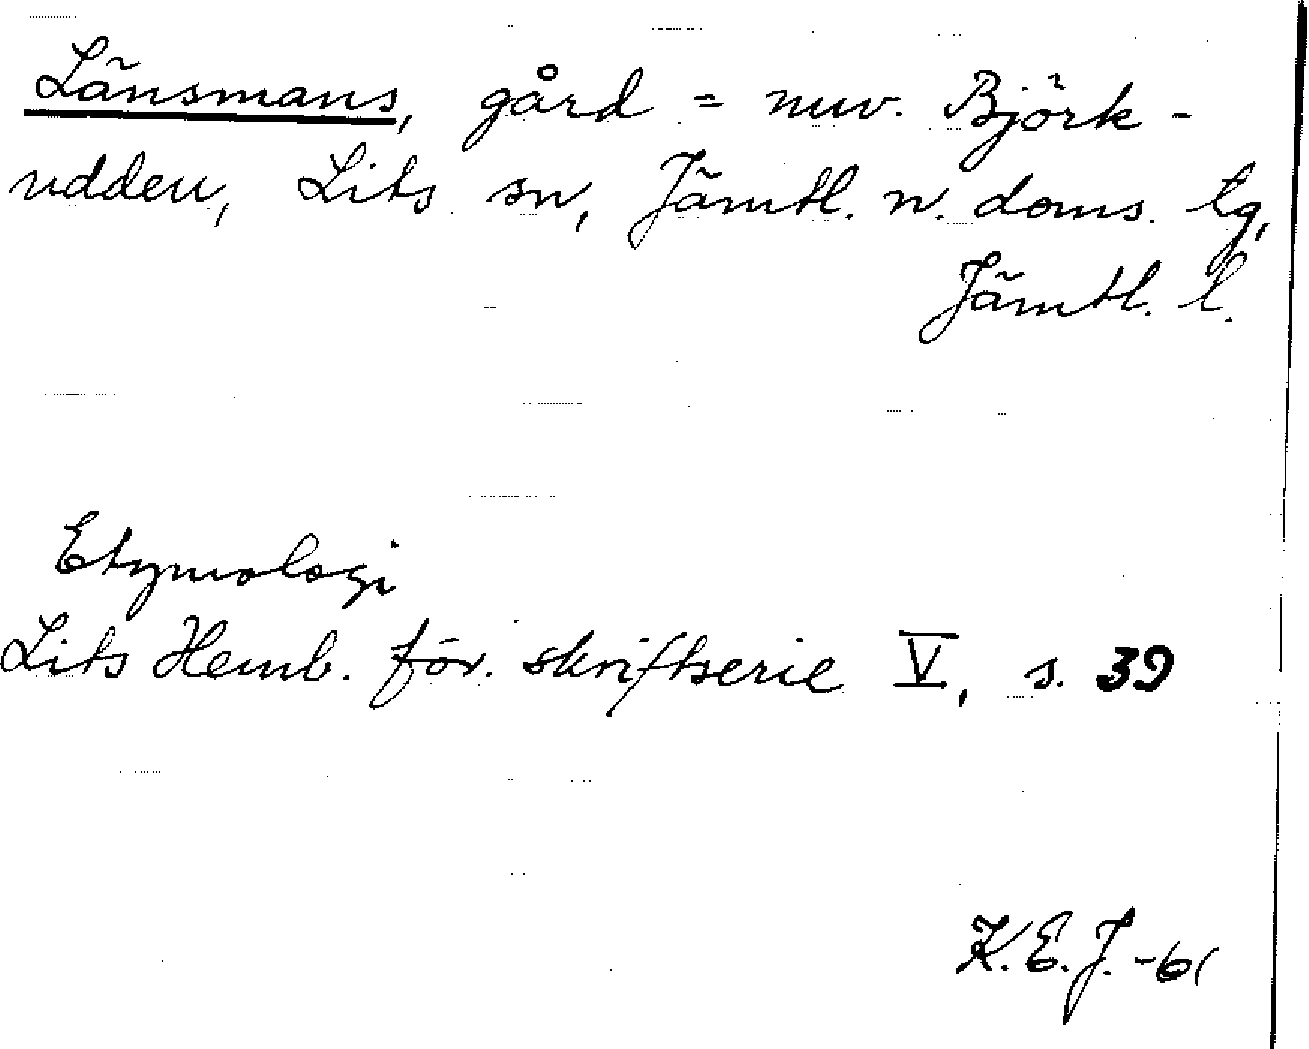 Länsmans, gård = nuv. Björk-
udden, Lits sn, Jämtl. n. doms. tg,
Jämtl. l.
Etymologi
Lits Hemb. för. skriftserie V, s. 39
K.E.J. -61